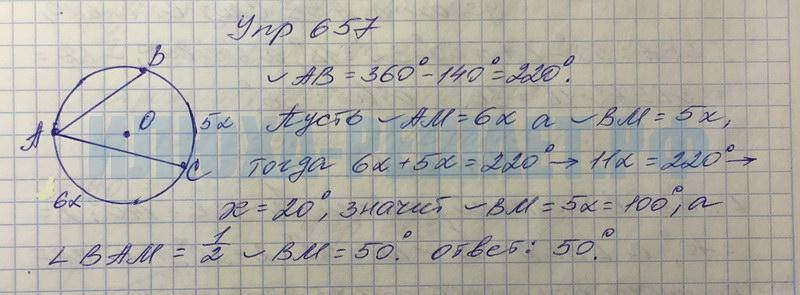 Упр 657
B
◡AB = 360° - 140° = 220°.
A
O
5x
Пусть ◡AM = 6x а ◡BM = 5x,
C
тогда 6x + 5x = 220° → 11x = 220° →
6x
x = 20°, значит ◡BM = 5x = 100°, а
∠BAM = 1/2 ◡BM = 50°. ответ: 50°.